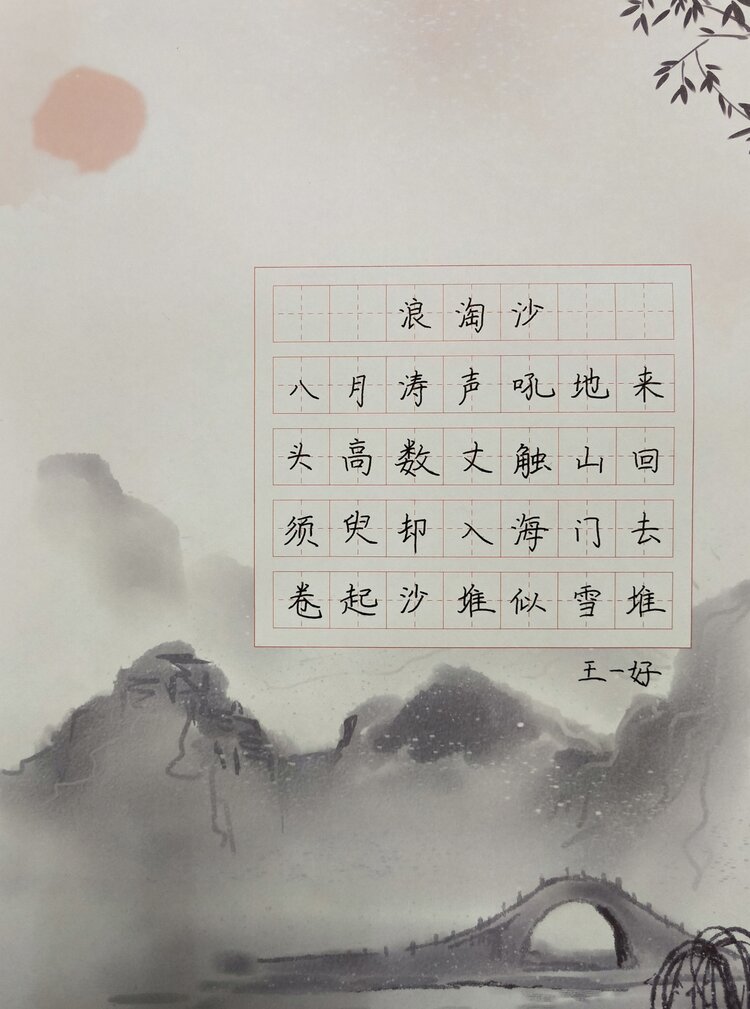 浪淘沙
八月涛声吼地来
头高数丈触山回
须臾却入海门去
卷起沙堆似雪堆
王一好